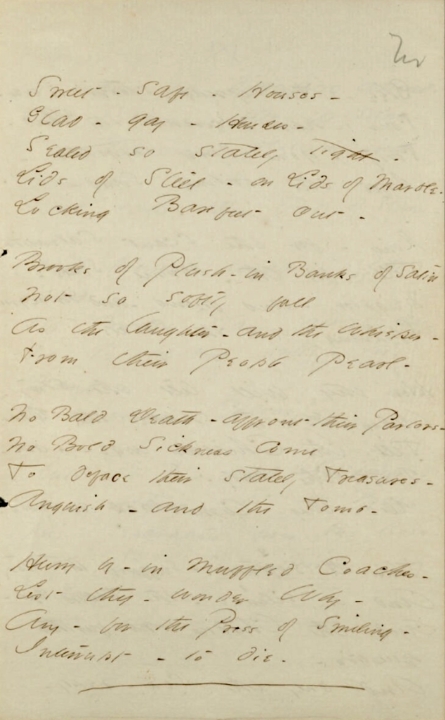 Sweet - safe - Houses -
Glad - gay - Houses -
Sealed so stately tight -
Lids of Steel - on Lids of Marble -
Locking Barefeet out -
Brooks of Plush - in Banks of Satin
Not so softly fall
As the laughter - and the whisper -
From their People Pearl -
No Bald Death - affront their Parlors -
No Bold Sickness come
To deface their stately Treasures -
Anguish - and the Tomb -
Hum by - in muffled Coaches -
Lest they - wonder Why -
Any - for the Press of Smiling -
Interrupt - to die -